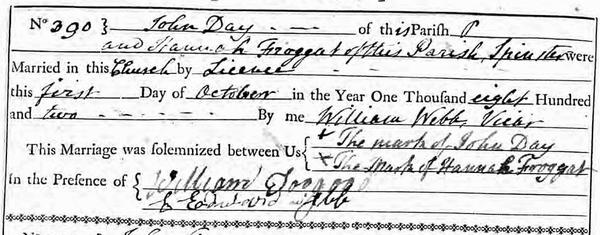 No 390 } John Day of this Parish
and Hannah Froggat of this Parish, Spinster were
Married in this Church by Licence
this first Day of October in the Year One Thousand eight Hundred
and two By me William Webb, Vicar
This Marriage was solemnized between Us { + The mark of John Day
× The Mark of Hannah Froggat
in the Presence of { William
& Webb
No